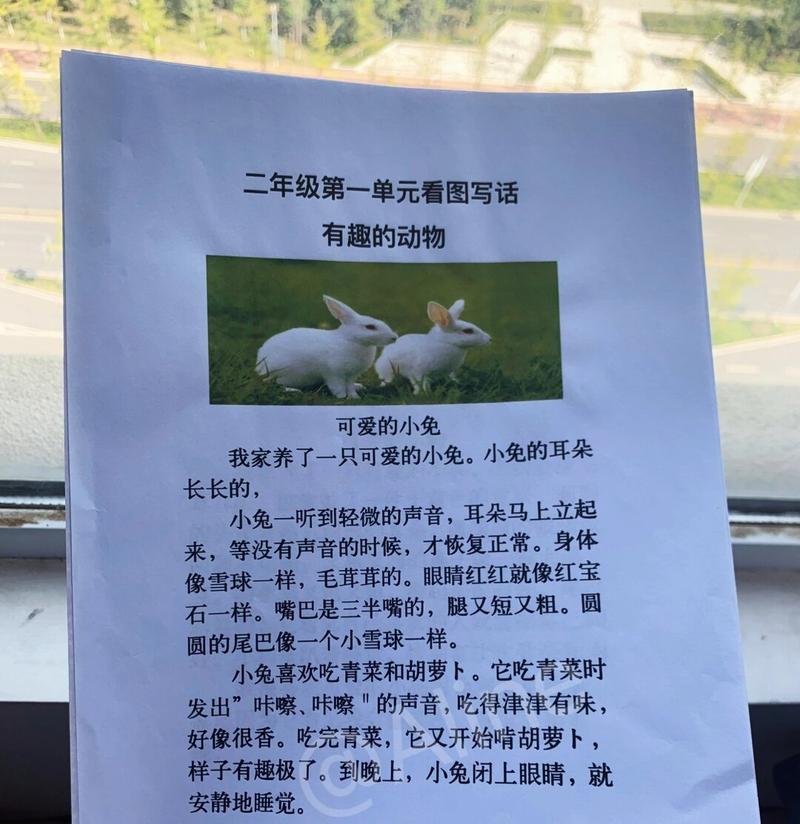 二年级第一单元看图写话
有趣的动物
可爱的小兔
我家养了一只可爱的小兔。小兔的耳朵
长长的，
小兔一听到轻微的声音，耳朵马上立起
来，等没有声音的时候，才恢复正常。身体
像雪球一样，毛茸茸的。眼睛红红就像红宝
石一样。嘴巴是三半嘴的，腿又短又粗。圆
圆的尾巴像一个小雪球一样。
小兔喜欢吃青菜和胡萝卜。它吃青菜时
发出”咔嚓、咔嚓＂的声音，吃得津津有味，
好像很香。吃完青菜，它又开始啃胡萝卜，
样子有趣极了。到晚上，小兔闭上眼睛，就
安静地睡觉。